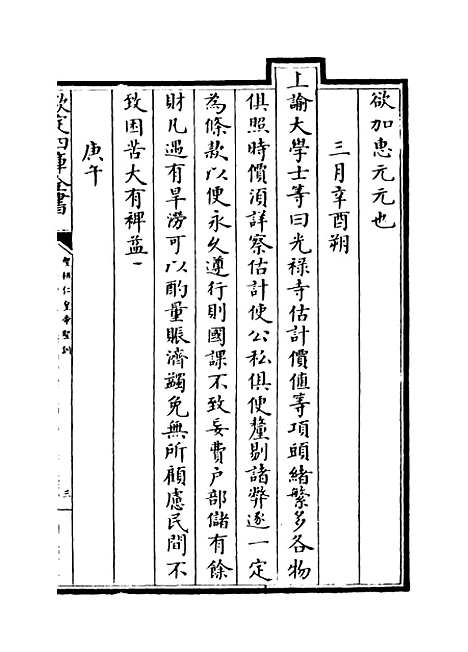 欲加惠元元也
三月辛酉朔
上諭大學士等曰光祿寺估計價值等項頭緒繁多各物
俱照時價須詳察估計使公私俱便釐剔諸弊逐一定
為條款以便永久遵行則國課不致妄費戶部儲有餘
財凡遇有旱澇可以酌量賑濟蠲免無所顧慮民間不
致困苦大有裨益
庚午
欽定四庫全書
聖祖仁皇帝聖訓
三